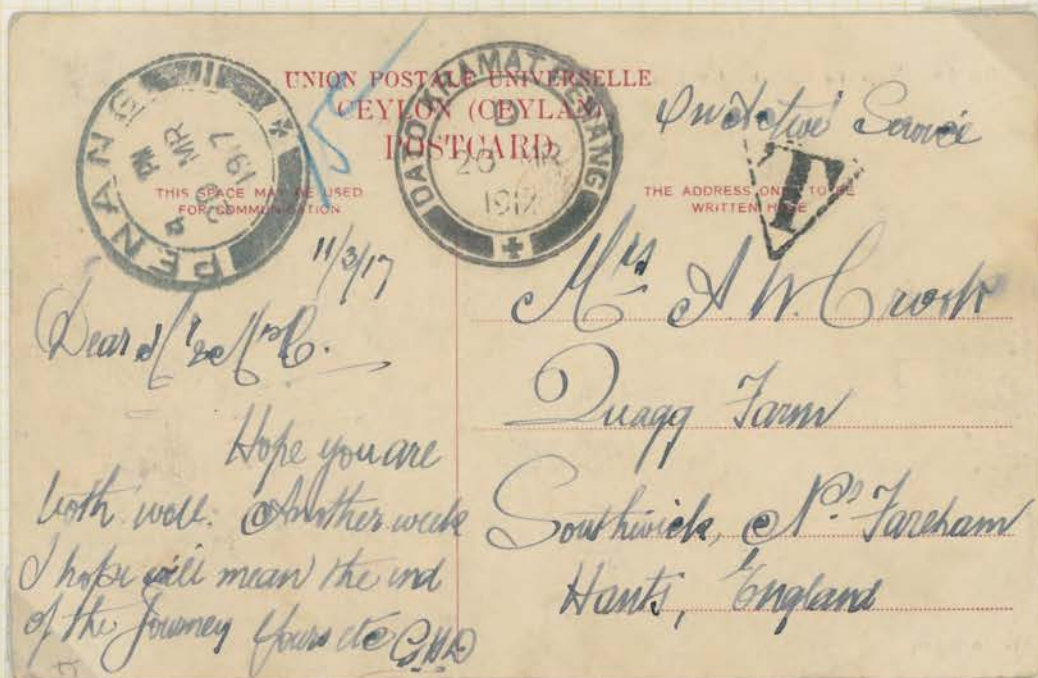 UNION POSTALE UNIVERSELLE
CEYLON (CEYLAN)
POSTCARD
THIS SPACE MAY BE USED
FOR COMMUNICATION
THE ADDRESS ONLY TO BE
WRITTEN HERE
PENANG
PM
MR
1917
DATOH KRAMAT PENANG
D
20 MR
1917
On Active Service
T
11/3/17
Dear Mr & Mrs C.
Hope you are
both well. Another week
I hope will mean the end
of the Journey Yours etc
Mrs A. W. Crook
Quagg Farm
Southwick, Nr Fareham
Hants, England